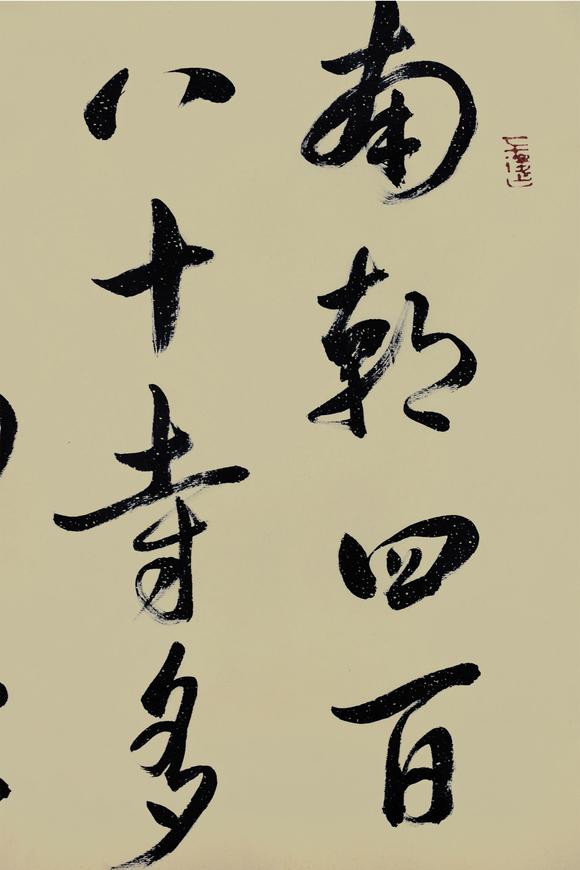 南朝四百
八十寺多